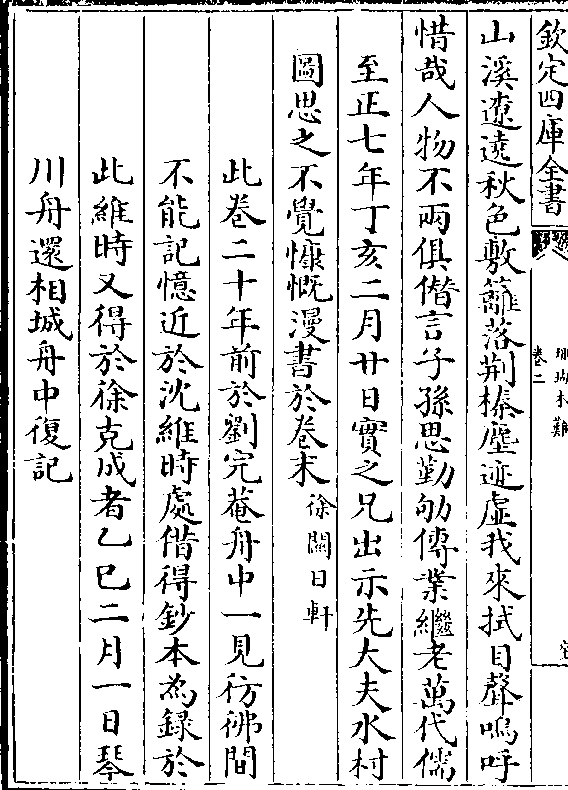 欽定四庫全書
珊瑚木難
卷二
山溪遼遠秋色敷籬落荆榛塵迹虛我來拭目聲嗚呼
惜哉人物不兩俱偕言子孫思勤劬傳業繼老萬代儒
至正七年丁亥二月廿日實之兄出示先大夫水村
圖思之不覺慷慨漫書於卷末
徐關日軒
此卷二十年前於劉完菴舟中一見彷彿間
不能記憶近於沈維時處借得鈔本為録於
此維時又得於徐克成者乙巳二月一日琴
川舟還相城舟中復記